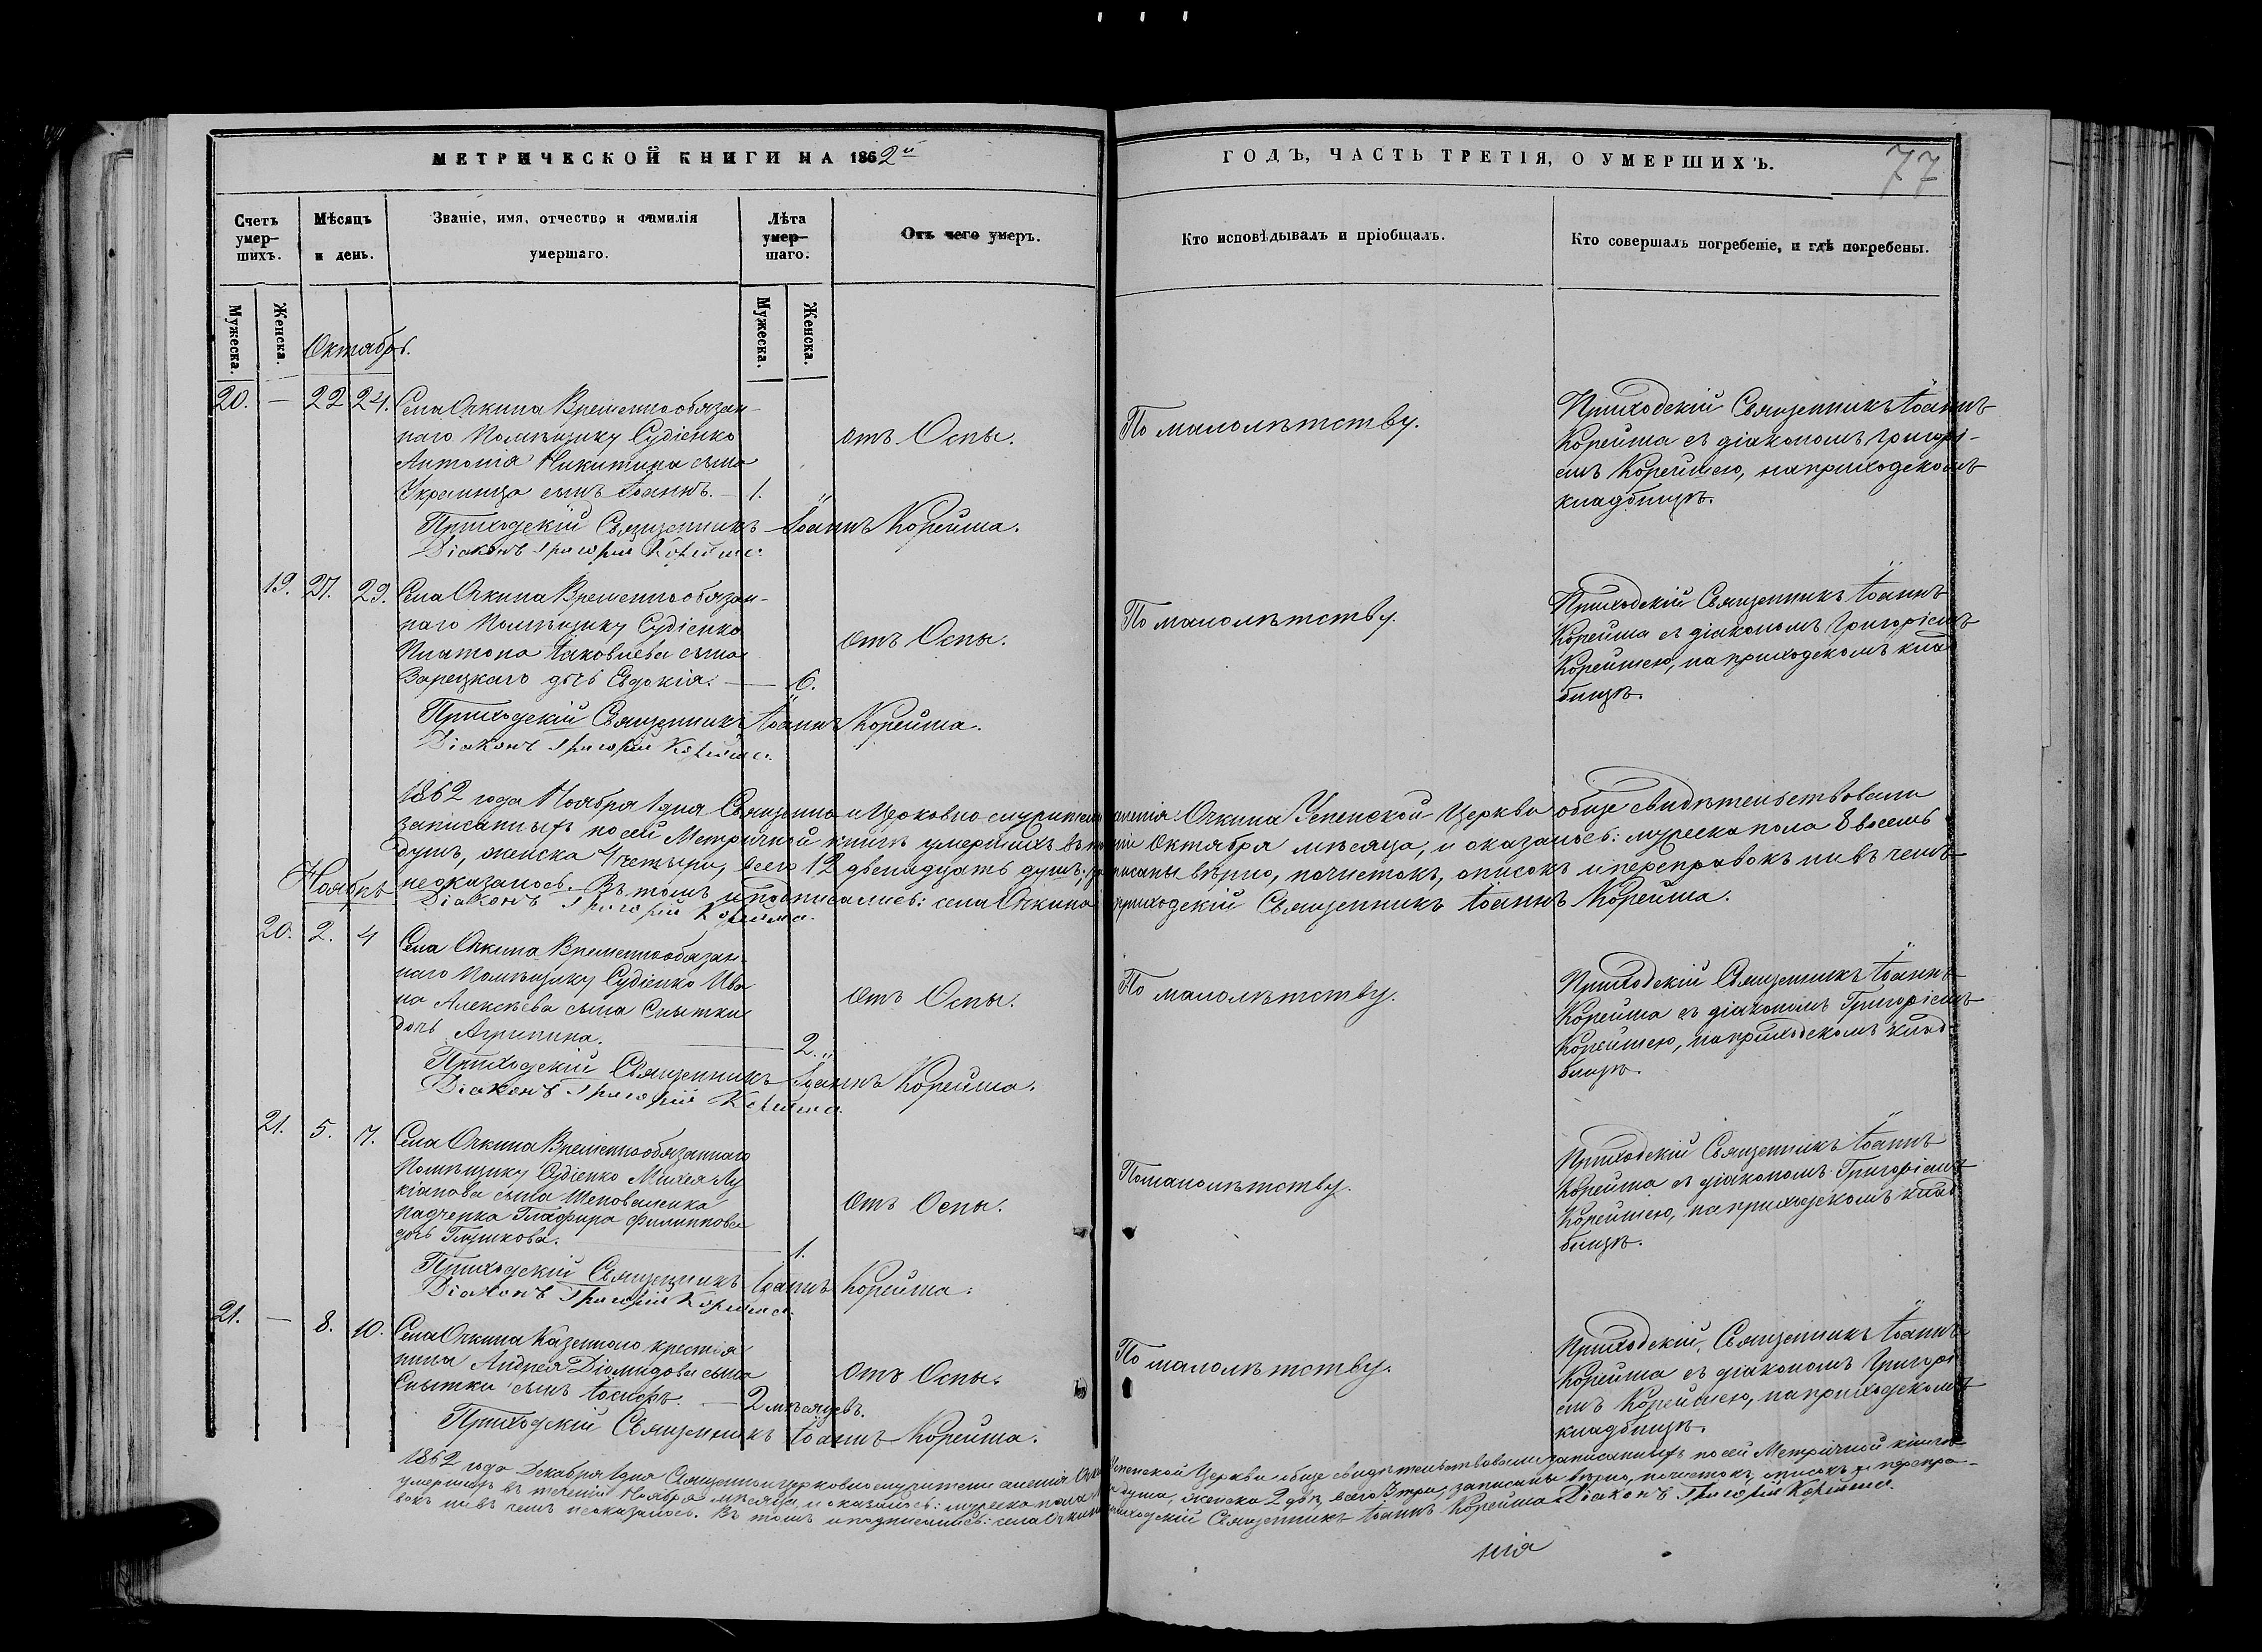 МЕТРИЧЕСКОЙ КНИГИ НА 1862й
ГОДЪ, ЧАСТЬ ТРЕТІЯ, О УМЕРШИХЪ.
77
Счетъ умер-шихъ.
Мѣсяцъ и день.
Званіе, имя, отчество и фамилія умершаго.
Лѣта умер-шаго.
Отъ чего умеръ.
Кто исповѣдывалъ и пріобщалъ.
Кто совершалъ погребеніе, и гдѣ погребены.
Мужеска.
Женска.
Мужеска.
Женска.
Октябрь.
20. — 22 24.
Села Очкина Временнообязан-
наго Помѣщику Судіенко
Антонія Никитина сына
Украинца сынъ Іоаннъ. — 1.
отъ Оспы.
По малолѣтству.
Приходскій Священникъ Іоаннъ
Корейша съ діакономъ Григорі-
емъ Корейшею, на приходскомъ
кладбищѣ.
Приходскій Священникъ Іоаннъ Корейша.
Діаконъ Григорій Корейша.
19. 27. 29.
Села Очкина Временнообязан-
наго Помѣщику Судіенко
Платона Іаковлева сына
Зарецкаго дочь Евдокія. — 6.
отъ Оспы.
По малолѣтству.
Приходскій Священникъ Іоаннъ
Корейша съ діакономъ Григоріемъ
Корейшею, на приходскомъ клад
бищѣ.
Приходскій Священникъ Іоаннъ Корейша.
Діаконъ Григорій Корейша.
1862 года Ноября 1 дня Священно и Церковно служители селенія Очкина Успенской Церкви обще свидѣтельствовали
записанныхъ по сей Метричной книгѣ умершихъ въ теченіи Октября мѣсяца, и оказалось: мужеска пола 8 восемь
душъ, женска 4 четыри, всего 12 двенадцать душъ; записаны вѣрно, почистокъ, описокъ и переправокъ ни въ чемъ
неоказалось. Въ томъ и подписались: села Очкина приходскій Священникъ Іоаннъ Корейша.
Діаконъ Григорій Корейша.
Ноябрь
20. 2. 4
Села Очкина Временнообязан-
наго Помѣщику Судіенко Ива
на Алексѣева сына Снытки
дочь Агрипина. — 2.
Отъ Оспы.
По малолѣтству.
Приходскій Священникъ Іоаннъ
Корейша съ діакономъ Григоріемъ
Корейшею, на приходскомъ клад-
бищѣ.
Приходскій Священникъ Іоаннъ Корейша.
Діаконъ Григорій Корейша.
21. 5. 7.
Села Очкина Временнообязаннаго
Помѣщику Судіенко Михея Лу
кіанова сына Шаповаленка
падчепка Глафира Филиппова
дочь Глушкова. — 1.
Отъ Оспы.
По малолѣтству.
Приходскій Священникъ Іоаннъ
Корейша съ діакономъ Григоріемъ
Корейшею, на приходскомъ клад
бищѣ.
Приходскій Священникъ Іоаннъ Корейша.
Діаконъ Григорій Корейша.
21. — 8. 10.
Села Очкина Казеннаго крестья
нина Андрея Діомидова сына
Снытки сынъ Іосифъ. — 2 мѣсяцевъ.
Отъ Оспы.
По малолѣтству.
Приходскій Священникъ Іоаннъ
Корейша съ діакономъ Григорі
емъ Корейшею, на приходскомъ
кладбищѣ.
Приходскій Священникъ Іоаннъ Корейша.
1862 года Декабря 1 дня Священно и церковно служители селенія Очкина Успенской Церкви обще свидѣтельствовали записанныхъ по сей Метричной книгѣ
умершихъ въ теченіи Ноября мѣсяца, и оказалось: мужеска пола 1 на душа, женска 2 двѣ, всего 3 три, записаны вѣрно, почистокъ, описокъ и перепра-
вокъ ни въ чемъ неоказалось. Въ томъ и подписались: села Очкина приходскій Священникъ Іоаннъ Корейша Діаконъ Григорій Корейша.